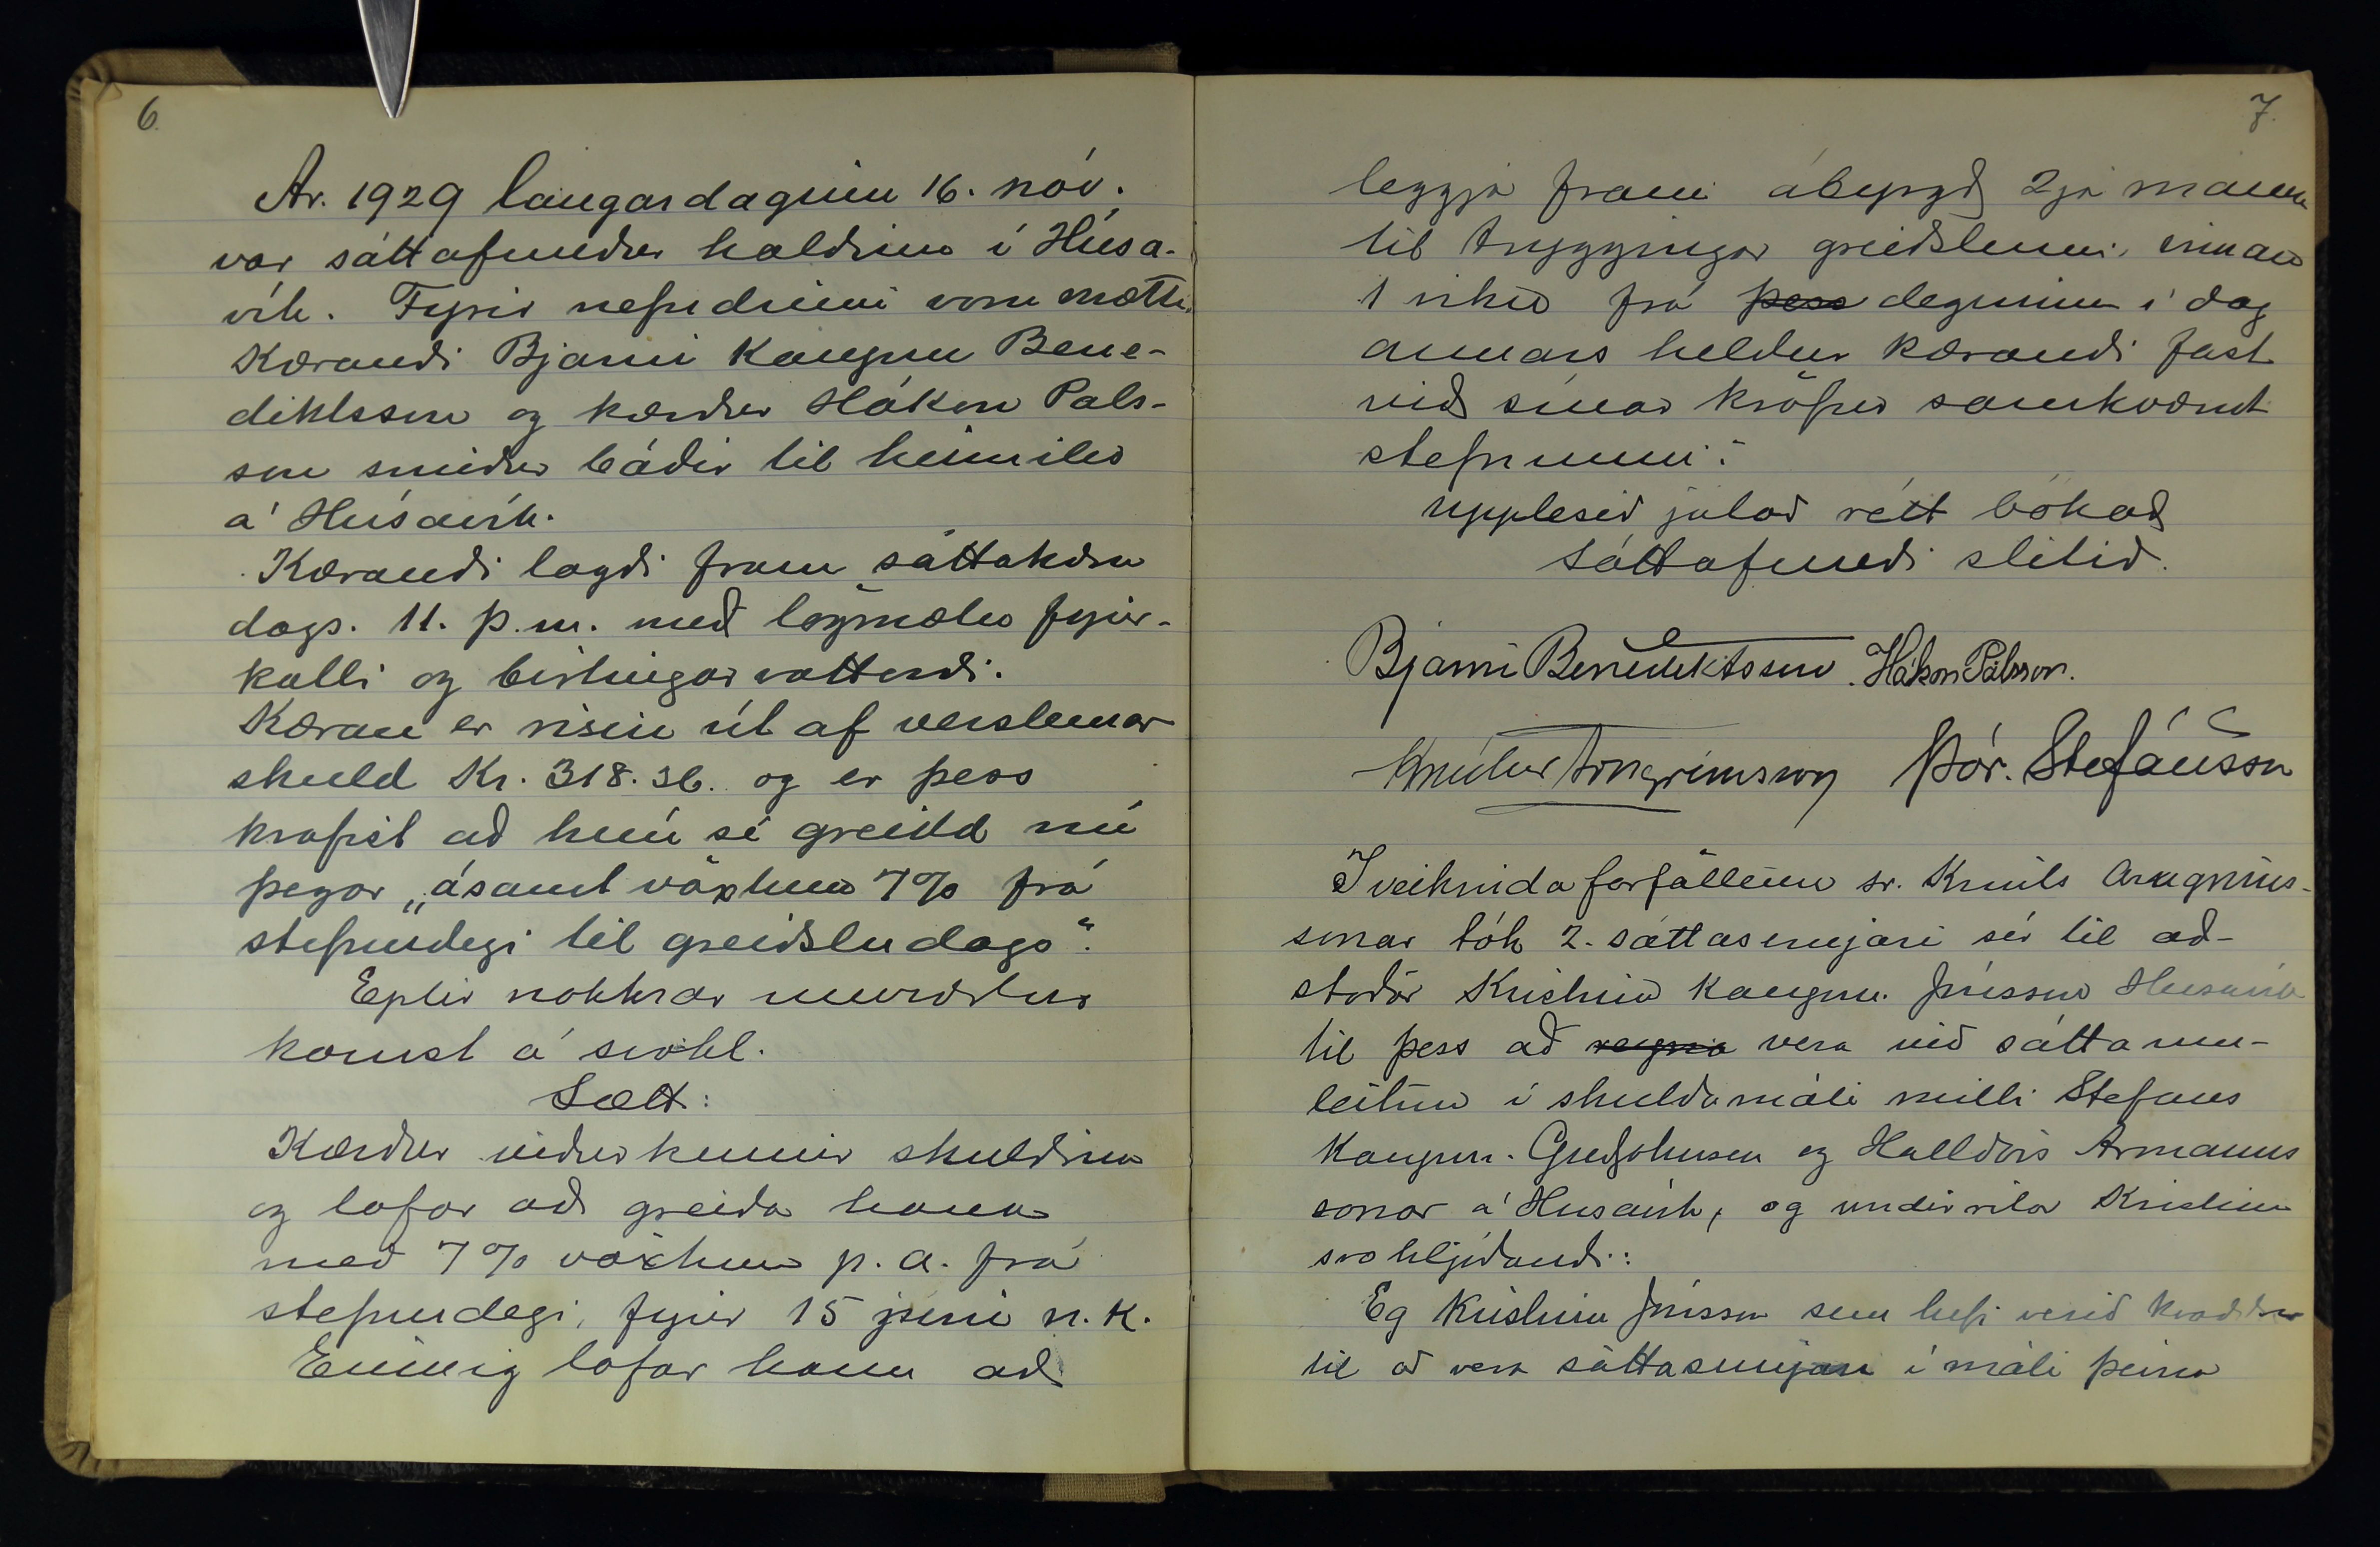 6.
Ár. 1929 laugardaginn 16. nóv.
var sáttafundur haldinn í Húsa-
vík. Fyrir nefndinni voru mættir
Kærandi Bjarni kaupm Bene-
diktsson og kærður Hákon Páls-
son smiður báðir til heimilis
á Húsavík.
Kærandi lagði fram sáttakæru
dags. 11. þ.m. með lögmælu fyrir-
kalli og birtingarvottorði.
Kæran er risin út af verslunar
skuld Kr. 318.36. og er þess
krafist að hún sé greidd nú
þegar „ásamt vöxtum 7% frá
stefnudegi til greiðsludags“.
Eptir nokkrar umræður
komst á svohl.
Sætt:
Kærður viðurkennir skuldina
og lofar að greiða hana
með 7% vöxtum p.a. frá
stefnudegi, fyrir 15 júní n.k.
Einnig lofar hann að
7.
leggja fram ábyrgð 2ja manna
til tryggingar greiðslunni, innan
1 viku frá þess deginum í dag
annars heldur kærandi fast
við sínar kröfur samkvæmt
stefnunni.
Upplesið játað rétt bókað
Sáttafundi slitið.
Bjarni Benediktsson. Hákon Pálsson.
Knútur Arngrímsson Þór. Stefánsson
Í veikindaforföllum sr. Knúts Arngríms-
sonar tók 2. sáttasemjari sér til að-
stoðar Kristinn kaupm. Jónsson Húsavík
til þess að reyna vera við sáttaum-
leitun í skuldamáli milli Stefáns
kaupm. Guðjohnsen og Halldórs Ármanns
sonar á Húsavík, og undirritar Kristinn
svohljóðandi:
Eg Kristinn Jónsson sem hefi verið kvaddur
til að vera sáttasemjari í máli þeirra